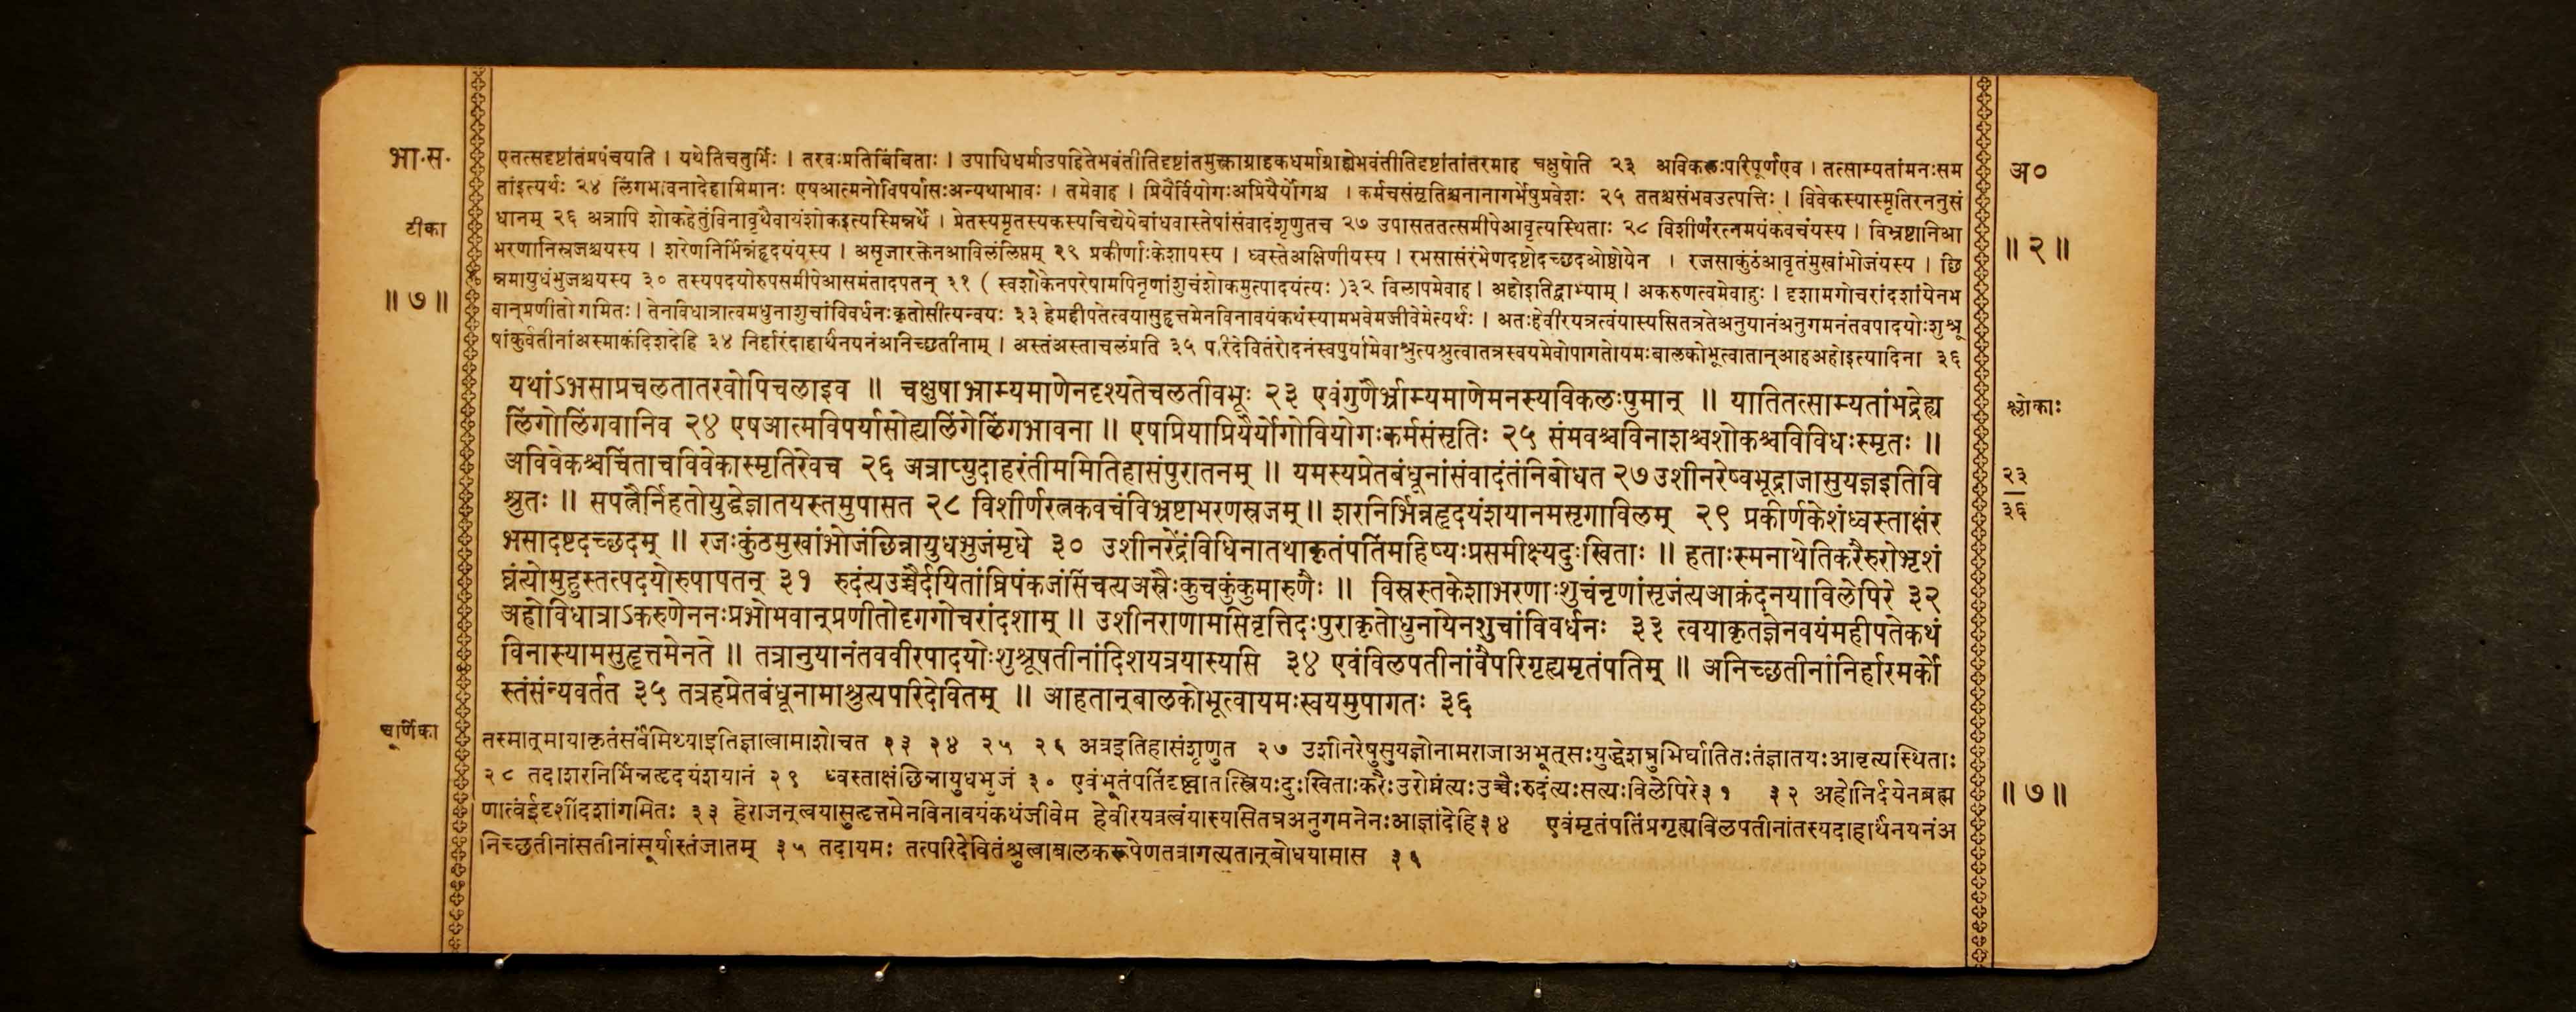 भा॰स॰
टीका
॥ ७ ॥
एतत्सदृष्टांतंप्रपंचयति । यथेतिचतुर्भिः । तरवःप्रतिबिंबिताः । उपाधिधर्माउपहितेभवंतीतिदृष्टांतमुक्त्वाग्राहकधर्माग्राह्येभवंतीतिदृष्टांतांतरमाह चक्षुषेति २३ अविकलःपरिपूर्णएव । तत्साम्यतांमनःसम
तांइत्यर्थः २४ लिंगभावनादेहाभिमानः एषआत्मनोविपर्यासःअन्यथाभावः । तमेवाह । प्रियैर्वियोगःअप्रियैर्योगश्च । कर्मचसंसृतिश्चनानागर्भेषुप्रवेशः २५ ततश्चसंभवउत्पत्तिः । विवेकस्यास्मृतिरननुसं
धानम् २६ अत्रापि शोकहेतुंविनावृथैवायंशोकइत्यस्मिन्नर्थे । प्रेतस्यमृतस्यकस्यचिद्येयेबांधवास्तेषांसंवादंशृणुतच २७ उपासततत्समीपेआवृत्यस्थिताः २८ विशीर्णंरत्नमयंकवचंयस्य । विभ्रष्टानिआ
भरणानिस्रजश्चयस्य । शरेणनिर्भिन्नंहृदयंयस्य । असृजारक्तेनआविलंलिप्तम् २९ प्रकीर्णाःकेशायस्य । ध्वस्तेअक्षिणीयस्य । रभसासंरंभेणदष्टोदच्छदओष्ठोयेन । रजसाकुंठंआवृतंमुखांभोजंयस्य । छि
न्नमायुधंभुजश्चयस्य ३० तस्यपदयोरुपसमीपेआसमंतादपतन् ३१ ( स्वशोकेनपरेषामपिनृणांशुचंशोकमुत्पादयंत्यः )३२ विलापमेवाह । अहोइतिद्वाभ्याम् । अकरुणत्वमेवाहुः । दृशामगोचरांदशांयेनभ
वान्प्रणीतो गमितः । तेनविधात्रात्वमधुनाशुचांविवर्धनःकृतोसीत्यन्वयः ३३ हेमहीपतेत्वयासुहृत्तमेनविनावयंकथंस्यामभवेमजीवेमेत्यर्थः । अतःहेवीरयत्रत्वंयास्यसितत्रतेअनुयानंअनुगमनंतवपादयोःशुश्रू
षांकुर्वतीनांअस्माकंदिशदेहि ३४ निर्हारंदाहार्थंनयनंअनिच्छतीनाम् । अस्तंअस्ताचलंप्रति ३५ परिदेवितंरोदनंस्वपुर्यामेवाश्रुत्यश्रुत्वातत्रस्वयमेवोपागतोयमःबालकोभूत्वातान्आहअहोइत्यादिना ३६
यथांऽभसाप्रचलतातरवोपिचलाइव ॥ चक्षुषाभ्राम्यमाणेनदृश्यतेचलतीवभूः २३ एवंगुणैर्भ्राम्यमाणेमनस्यविकलःपुमान् ॥ यातितत्साम्यतांभद्रेह्य
लिंगोलिंगवानिव २४ एषआत्मविपर्यासोह्यलिंगेलिंगभावना ॥ एषप्रियाप्रियैर्योगोवियोगःकर्मसंसृतिः २५ संभवश्चविनाशश्चशोकश्चविविधःस्मृतः ॥
अविवेकश्चचिंताचविवेकास्मृतिरेवच २६ अत्राप्युदाहरंतीममितिहासंपुरातनम् ॥ यमस्यप्रेतबंधूनांसंवादंतंनिबोधत २७ उशीनरेष्वभूद्राजासुयज्ञइतिवि
श्रुतः ॥ सपत्नैर्निहतोयुद्धेज्ञातयस्तमुपासत २८ विशीर्णरत्नकवचंविभ्रष्टाभरणस्रजम् ॥ शरनिर्भिन्नहृदयंशयानमसृगाविलम् २९ प्रकीर्णकेशंध्वस्ताक्षंर
भसादष्टदच्छदम् ॥ रजःकुंठमुखांभोजंछिन्नायुधभुजंमृधे ३० उशीनरेंद्रंविधिनातथाकृतंपतिंमहिष्यःप्रसमीक्ष्यदुःखिताः ॥ हताःस्मनाथेतिकरैरुरोभृशं
घ्नंत्योमुहुस्तत्पदयोरुपापतन् ३१ रुदंत्यउच्चैर्दयितांघ्रिपंकजंसिंचत्यअस्रैःकुचकुंकुमारुणैः ॥ विस्रस्तकेशाभरणाःशुचंनृणांसृजंत्यआक्रंदनयाविलेपिरे ३२
अहोविधात्राऽकरुणेननःप्रभोभवान्प्रणीतोदृगगोचरांदशाम् ॥ उशीनराणामसिवृत्तिदःपुराकृतोधुनायेनशुचांविवर्धनः ३३ त्वयाकृतज्ञेनवयंमहीपतेकथं
विनास्यामसुहृत्तमेनते ॥ तत्रानुयानंतववीरपादयोःशुश्रूषतीनांदिशयत्रयास्यसि ३४ एवंविलपतीनांवैपरिगृह्यमृतंपतिम् ॥ अनिच्छतीनांनिर्हारमर्को
स्तंसंन्यवर्तत ३५ तत्रहप्रेतबंधूनामाश्रुत्यपरिदेवितम् ॥ आहतान्बालकोभूत्वायमःस्वयमुपागतः ३६
चूर्णिका
तस्मात्मायाकृतंसर्वंमिथ्याइतिज्ञात्वामाशोचत २३ २४ २५ २६ अत्रइतिहासंशृणुत २७ उशीनरेषुसुयज्ञोनामराजाअभूत्सःयुद्धेशत्रुभिर्घातितःतंज्ञातयःआवृत्यस्थिताः
२८ तदाशरनिर्भिन्नहृदयंशयानं २९ ध्वस्ताक्षंछिन्नायुधभुजं ३० एवंभूतंपतिंदृष्ट्वातत्स्त्रियःदुःखिताःकरैःउरोघ्नंत्यःउच्चैःरुदंत्यःसत्यःविलेपिरे३१ ३२ अहोनिर्दयेनब्रह्म
णात्वंईदृशींदशांगमितः ३३ हेराजन्त्वयासुहृत्तमेनविनावयंकथंजीवेम हेवीरयत्रत्वंयास्यसितत्रअनुगमनेनःआज्ञांदेहि३४ एवंमृतंपतिंप्रगृह्यविलपतीनांतस्यदाहार्थंनयनंअ
निच्छतीनांसतीनांसूर्यास्तंजातम् ३५ तदायमः तत्परिदेवितंश्रुत्वाबालकरूपेणतत्रागत्यतान्बोधयामास ३६
अ०
॥ २ ॥
श्लोकाः
२३
३६
॥ ७ ॥